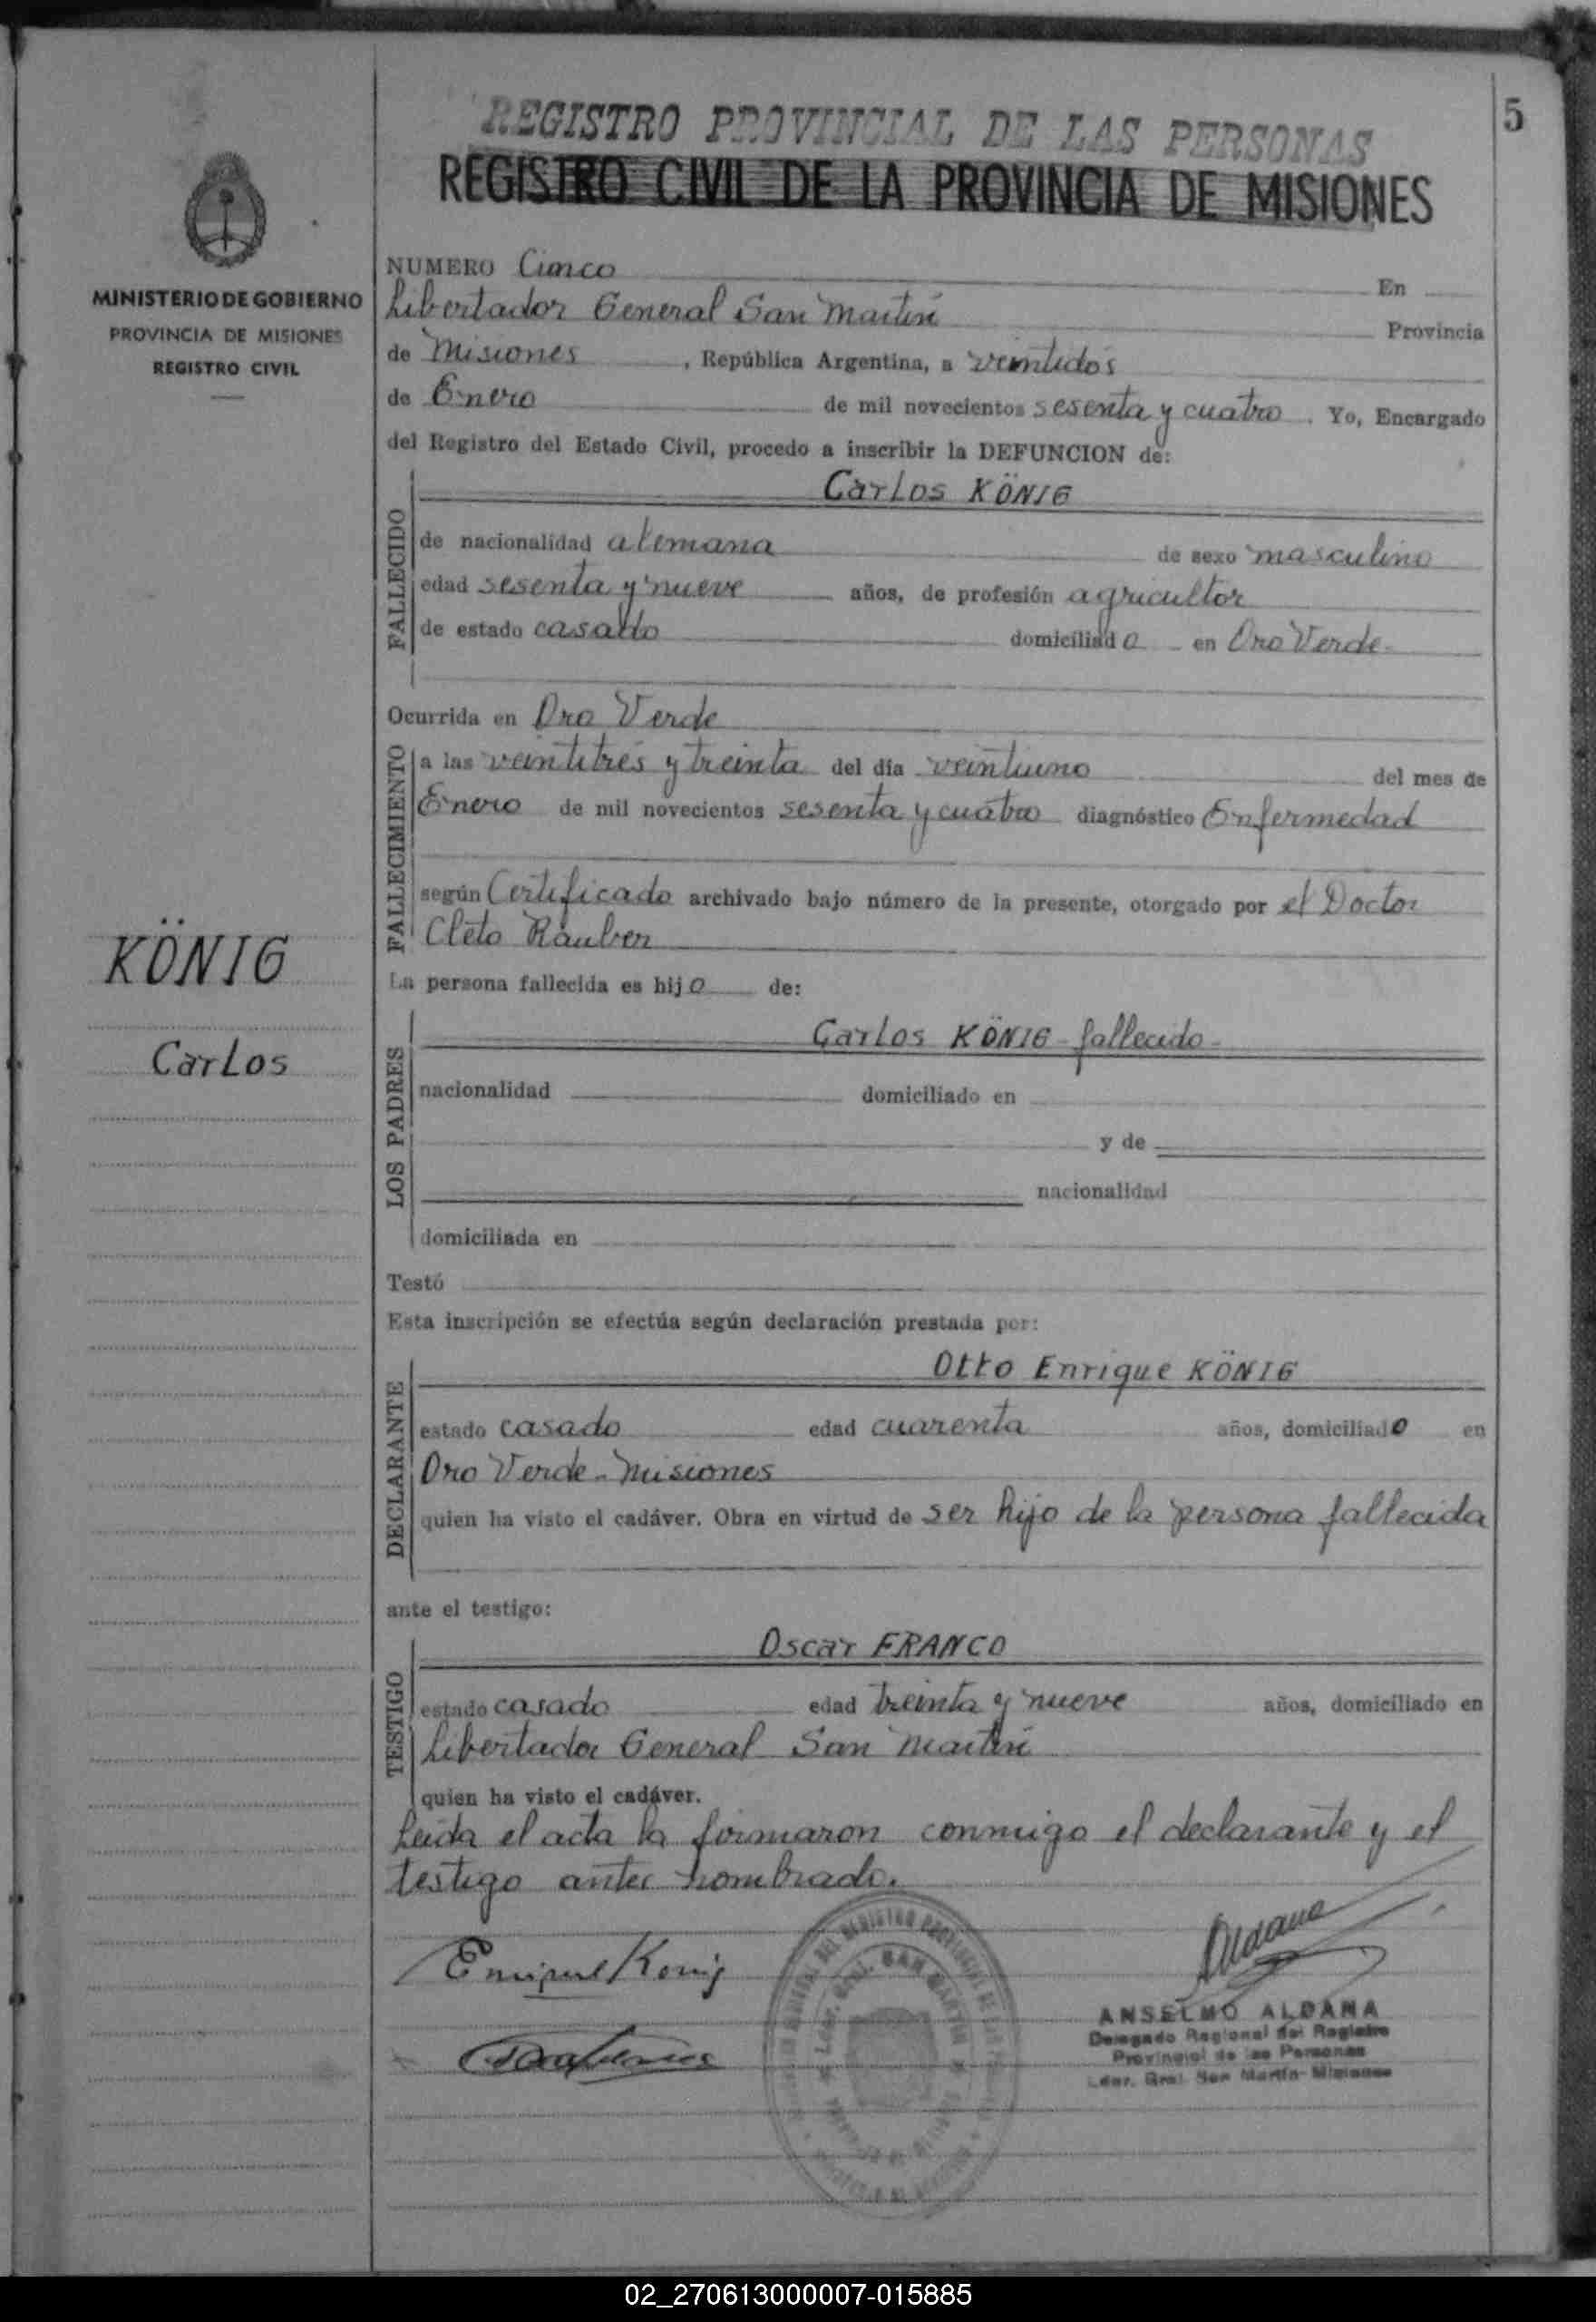 5
REGISTRO PROVINCIAL DE LAS PERSONAS
REGISTRO CIVIL DE LA PROVINCIA DE MISIONES
MINISTERIO DE GOBIERNO
PROVINCIA DE MISIONES
REGISTRO CIVIL
KÖNIG
Carlos
NUMERO Cinco En
Libertador General San Martín Provincia
de Misiones , República Argentina, a veintidós
de Enero de mil novecientos sesenta y cuatro . Yo, Encargado
del Registro del Estado Civil, procedo a inscribir la DEFUNCION de:
FALLECIDO
Carlos KÖNIG
de nacionalidad alemana de sexo masculino
edad sesenta y nueve años, de profesión agricultor
de estado casado domiciliado en Oro Verde-
Ocurrida en Oro Verde
FALLECIMIENTO
a las veintitrés y treinta del día veintiuno del mes de
Enero de mil novecientos sesenta y cuatro diagnóstico Enfermedad
según Certificado archivado bajo número de la presente, otorgado por el Doctor
Cleto Rauber
La persona fallecida es hijo de:
LOS PADRES
Carlos KÖNIG - fallecido-
nacionalidad domiciliado en
y de
nacionalidad
domiciliada en
Testó
Esta inscripción se efectúa según declaración prestada por:
DECLARANTE
Otto Enrique KÖNIG
estado casado edad cuarenta años, domiciliado en
Oro Verde - Misiones
quien ha visto el cadáver. Obra en virtud de ser hijo de la persona fallecida
ante el testigo:
TESTIGO
Oscar FRANCO
estado casado edad treinta y nueve años, domiciliado en
Libertador General San Martín
quien ha visto el cadáver.
Leída el acta la firmaron conmigo el declarante y el
testigo antes nombrado.
Enrique König
Aldana
ANSELMO ALDANA
Delegado Regional del Registro
Provincial de las Personas
Ldor. Gral. San Martín-Misiones
02_270613000007-015885